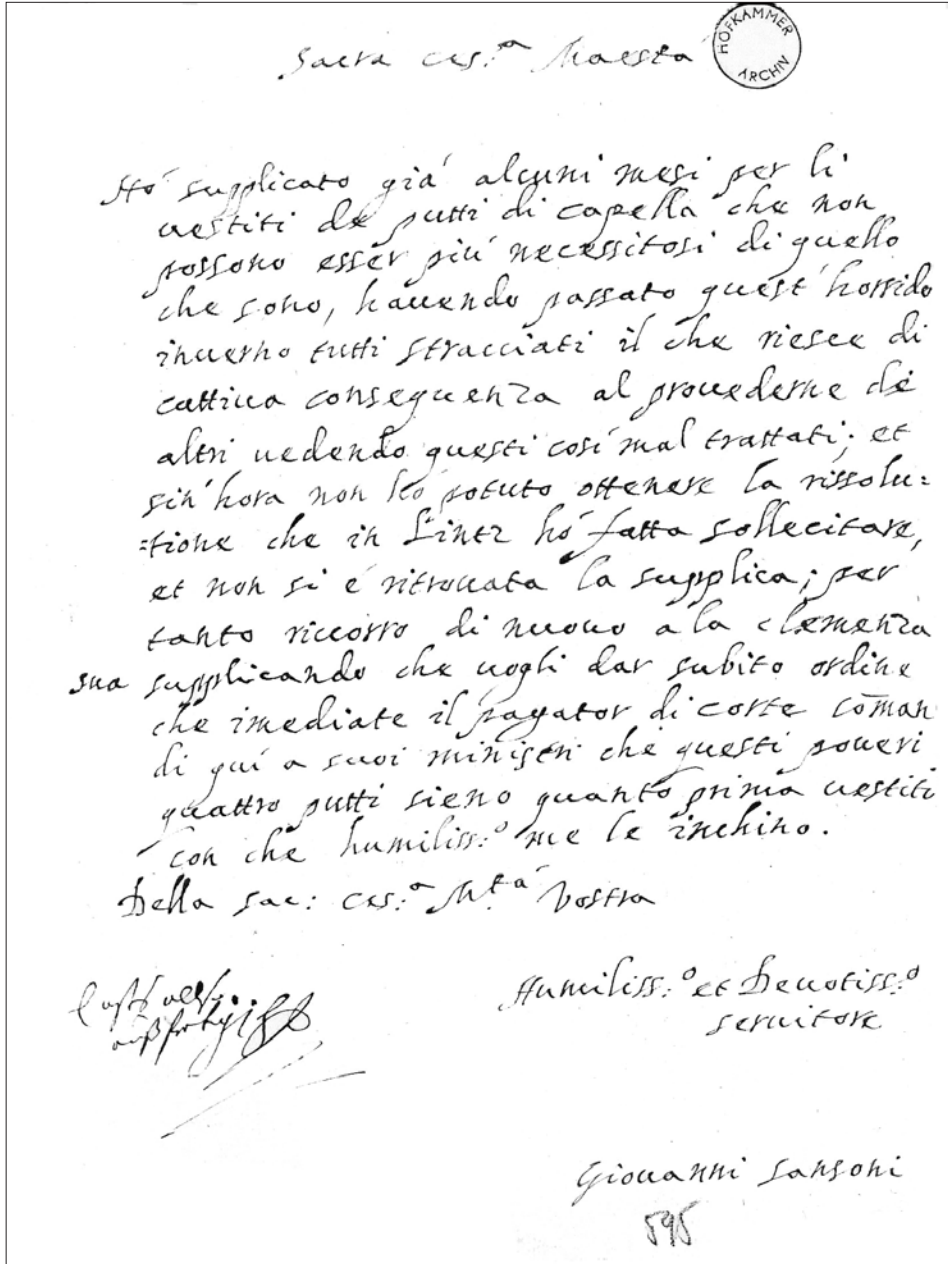 Sacra ces.ª Maesta
HOFKAMMER
ARCHIV
Hó supplicato giá alcuni mesi per li
uestiti de putti di capella che non
possono esser piú necessitosi di quello
che sono, hauendo passato quest'horrido
inuerno tutti stracciati il che riesce di
cattiua consequenza al prouederne de
altri uedendo questi cosí mal trattati; et
sin'hora non hó potuto ottenere la rissolu=
=tione che in Lintz hó fatta sollecitare,
et non si é ritrouata la supplica; per
tanto riccorro di nuouo a la clemenza
sua supplicando che uogli dar subito ordine
che imediate il pagator di corte comān
di quí a suoi ministri che questi poueri
quattro putti sieno quanto prima uestiti
con che humiliss:º me le inchino.
Della sac: ces:ª M.tá Vostra
Humiliss:º et Deuotiss:º
seruitore
Giouanni Sansoni
595